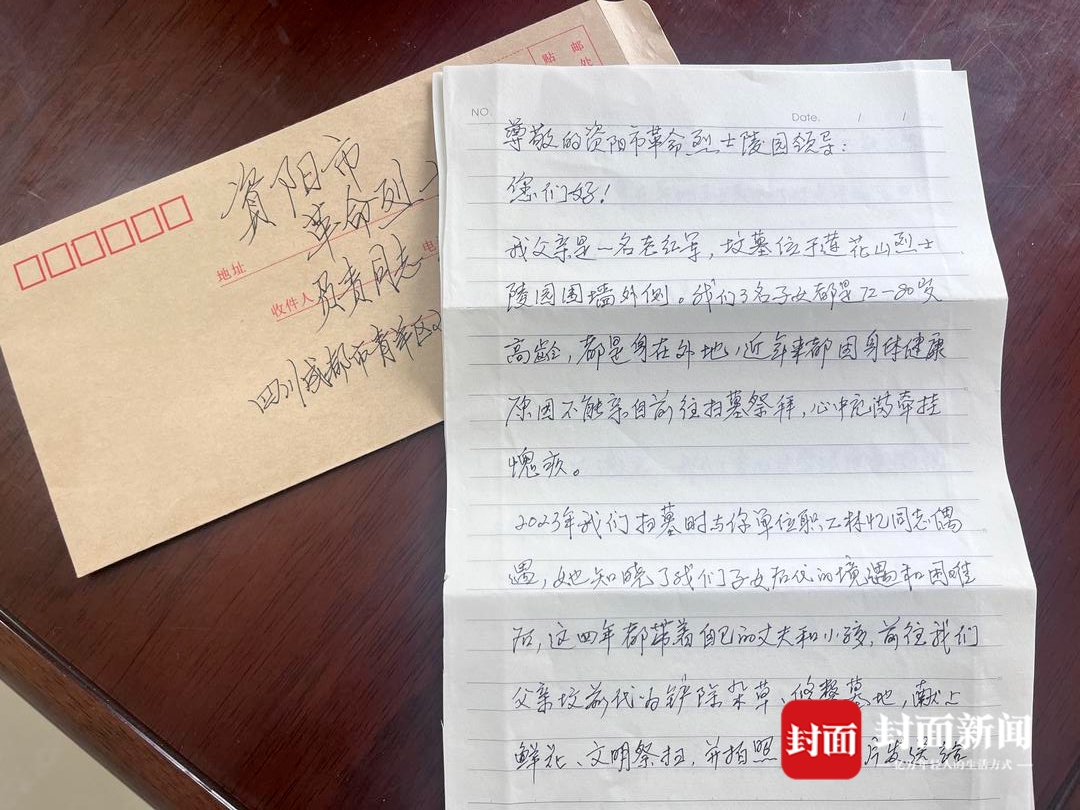 贴 邮
处
资阳市
革命烈士
地址
电
收件人
负责同志
四川成都市青羊区
NO.
Date. / /
尊敬的资阳市革命烈士陵园领导:
您们好!
我父亲是一名老红军,坟墓位于莲花山烈士
陵园围墙外侧。我们3名子女都是72-80岁
高龄,都是身在外地,近年来都因身体健康
原因不能亲自前往扫墓祭拜,心中充满牵挂
愧疚。
2023年我们扫墓时与你单位职工林忆同志偶
遇,她知晓了我们子女后代的境遇和困难
后,这四年都带着自己的丈夫和小孩,前往我们
父亲坟前代为铲除杂草、修整墓地,献上
鲜花、文明祭扫,并拍照
片发送给
封面
封面新闻
亿万年轻人的生活方式